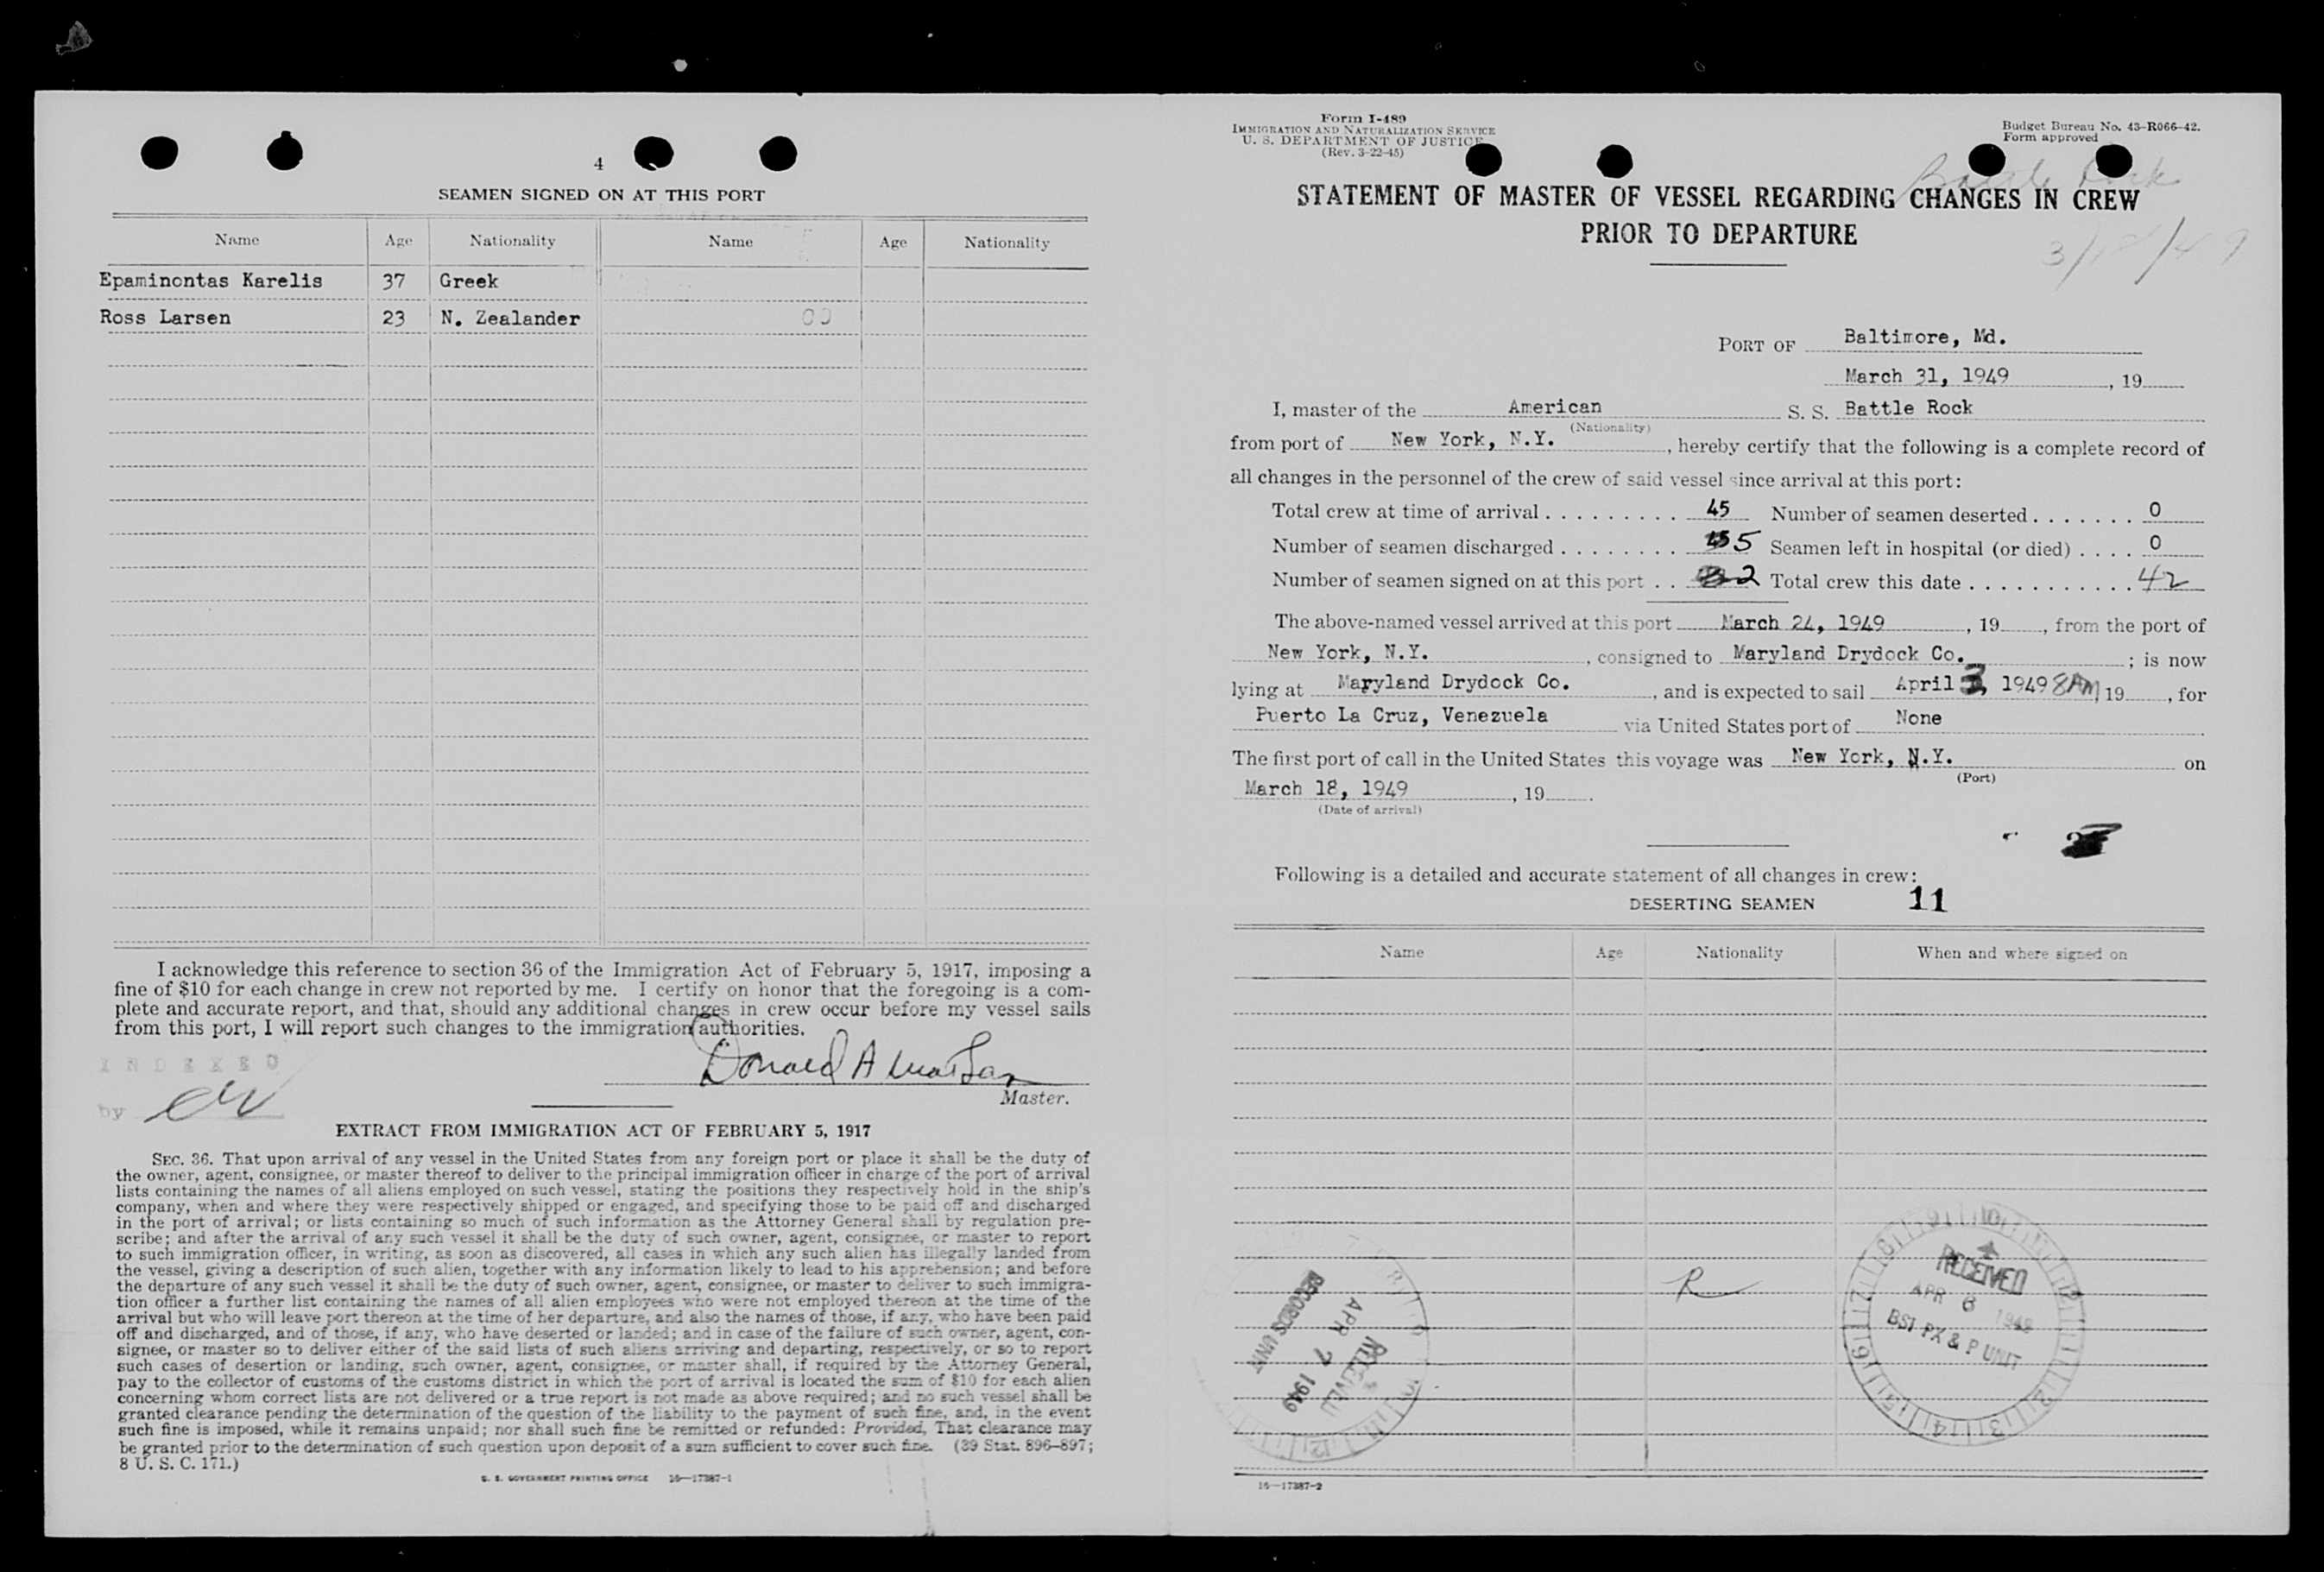 4
SEAMEN SIGNED ON AT THIS PORT
Name Age Nationality Name Age Nationality
Epaminontas Karelis 37 Greek
Ross Larsen 23 N. Zealander
I acknowledge this reference to section 36 of the Immigration Act of February 5, 1917, imposing a
fine of $10 for each change in crew not reported by me. I certify on honor that the foregoing is a com-
plete and accurate report, and that, should any additional changes in crew occur before my vessel sails
from this port, I will report such changes to the immigration authorities.
INDEXED
Donald A
by
Master.
EXTRACT FROM IMMIGRATION ACT OF FEBRUARY 5, 1917
SEC. 36. That upon arrival of any vessel in the United States from any foreign port or place it shall be the duty of
the owner, agent, consignee, or master thereof to deliver to the principal immigration officer in charge of the port of arrival
lists containing the names of all aliens employed on such vessel, stating the positions they respectively hold in the ship's
company, when and where they were respectively shipped or engaged, and specifying those to be paid off and discharged
in the port of arrival; or lists containing so much of such information as the Attorney General shall by regulation pre-
scribe; and after the arrival of any such vessel it shall be the duty of such owner, agent, consignee, or master to report
to such immigration officer, in writing, as soon as discovered, all cases in which any such alien has illegally landed from
the vessel, giving a description of such alien, together with any information likely to lead to his apprehension; and before
the departure of any such vessel it shall be the duty of such owner, agent, consignee, or master to deliver to such immigra-
tion officer a further list containing the names of all alien employees who were not employed thereon at the time of the
arrival but who will leave port thereon at the time of her departure, and also the names of those, if any, who have been paid
off and discharged, and of those, if any, who have deserted or landed; and in case of the failure of such owner, agent, con-
signee, or master so to deliver either of the said lists of such aliens arriving and departing, respectively, or so to report
such cases of desertion or landing, such owner, agent, consignee, or master shall, if required by the Attorney General,
pay to the collector of customs of the customs district in which the port of arrival is located the sum of $10 for each alien
concerning whom correct lists are not delivered or a true report is not made as above required; and no such vessel shall be
granted clearance pending the determination of the question of the liability to the payment of such fine, and, in the event
such fine is imposed, while it remains unpaid; nor shall such fine be remitted or refunded: Provided, That clearance may
be granted prior to the determination of such question upon deposit of a sum sufficient to cover such fine. (39 Stat. 896–897;
8 U. S. C. 171.)
U. S. GOVERNMENT PRINTING OFFICE 16—17387-1
Form I-489
IMMIGRATION AND NATURALIZATION SERVICE
U. S. DEPARTMENT OF JUSTICE
(Rev. 3-22-45)
Budget Bureau No. 43-R066-42.
Form approved
Battle Rock
STATEMENT OF MASTER OF VESSEL REGARDING CHANGES IN CREW
PRIOR TO DEPARTURE
PORT OF Baltimore, Md.
March 31, 1949, 19
I, master of the American S. S. Battle Rock
(Nationality)
from port of New York, N.Y., hereby certify that the following is a complete record of
all changes in the personnel of the crew of said vessel since arrival at this port:
Total crew at time of arrival 45 Number of seamen deserted 0
Number of seamen discharged 5 Seamen left in hospital (or died) 0
Number of seamen signed on at this port 2 Total crew this date 42
The above-named vessel arrived at this port March 24, 1949, 19, from the port of
New York, N.Y., consigned to Maryland Drydock Co.; is now
lying at Maryland Drydock Co., and is expected to sail April 3, 1949 8AM, 19, for
Puerto La Cruz, Venezuela via United States port of None
The first port of call in the United States this voyage was New York, N.Y. on
(Port)
March 18, 1949, 19.
(Date of arrival)
Following is a detailed and accurate statement of all changes in crew:
DESERTING SEAMEN 11
Name Age Nationality When and where signed on
R
RECEIVED
APR 6 1949
BSI PX & P UNIT
RECORDS UNIT
APR 7 1949
RECEIVED
16—17387-2